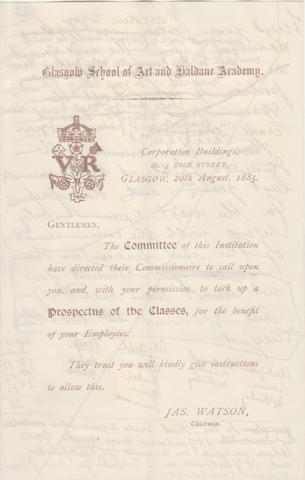 Glasgow School of Art and Haldane Academy.
VR
Corporation Buildings,
ROSE STREET,
GLASGOW, 20th August, 1885.
GENTLEMEN,
The Committee of this Institution
have directed their Commissionaire to call upon
you, and, with your permission, to tack up a
Prospectus of the Classes, for the benefit
of your Employees.
They trust you will kindly give instructions
to allow this.
JAS. WATSON,
Chairman.